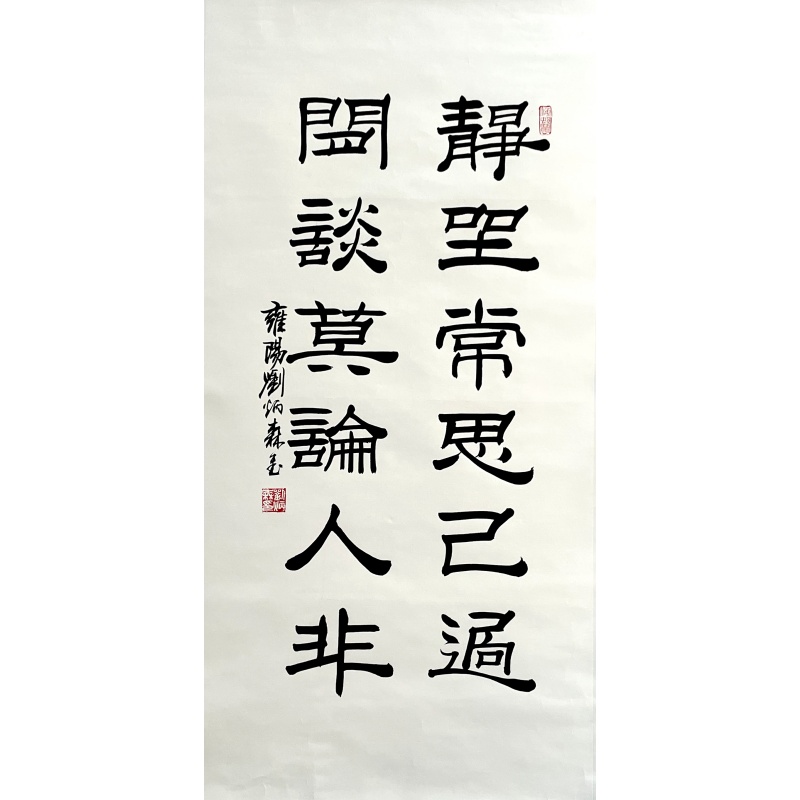 靜坐常思己過
閒談莫論人非
雍陽劉炳森書